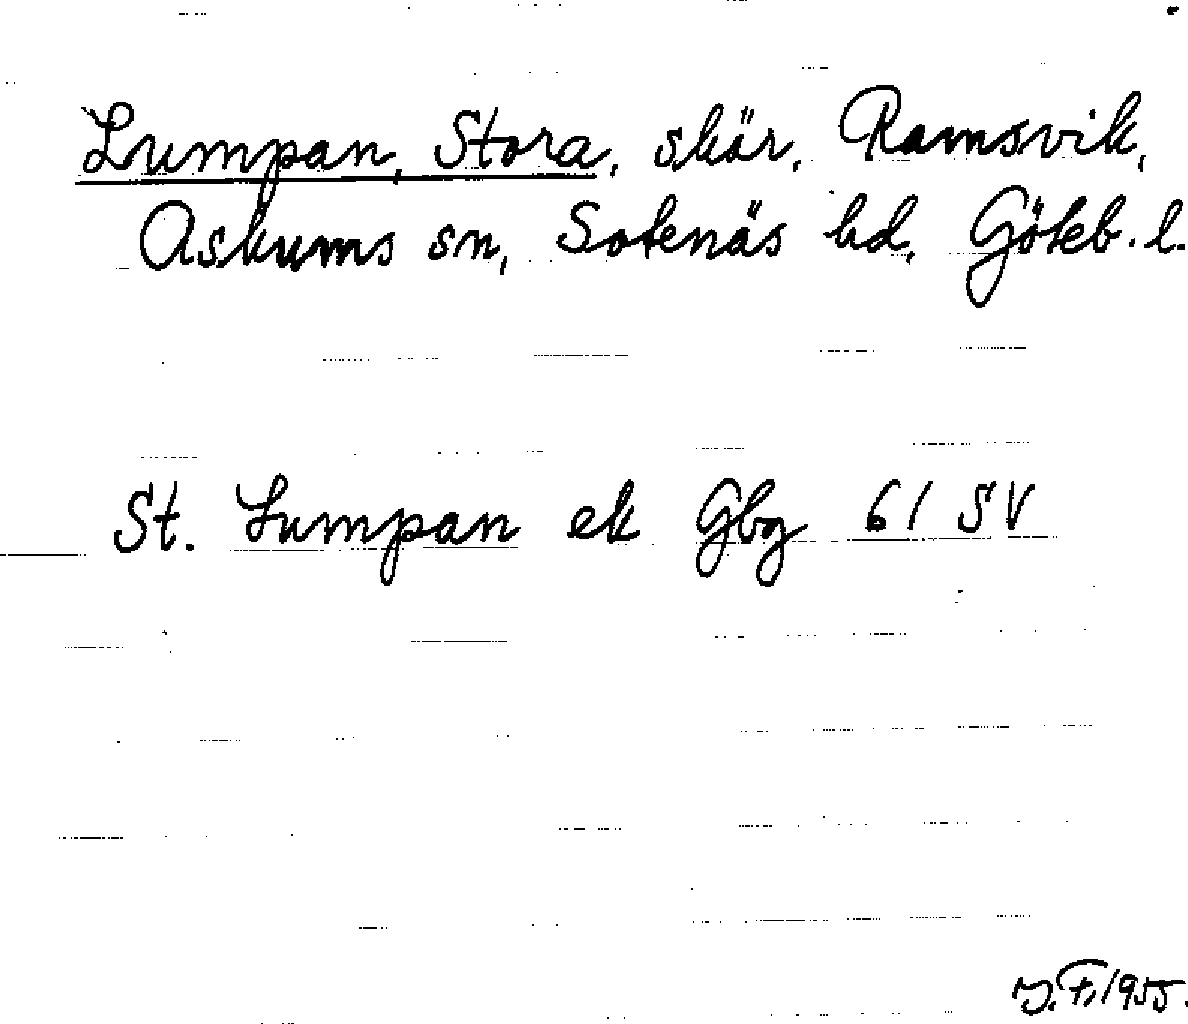 Lumpan, Stora, skär, Ramsvik,
Askums sn, Sotenäs hd, Göteb. l.
St. Lumpan ek Gbg 61 SV
J.F. 1955.